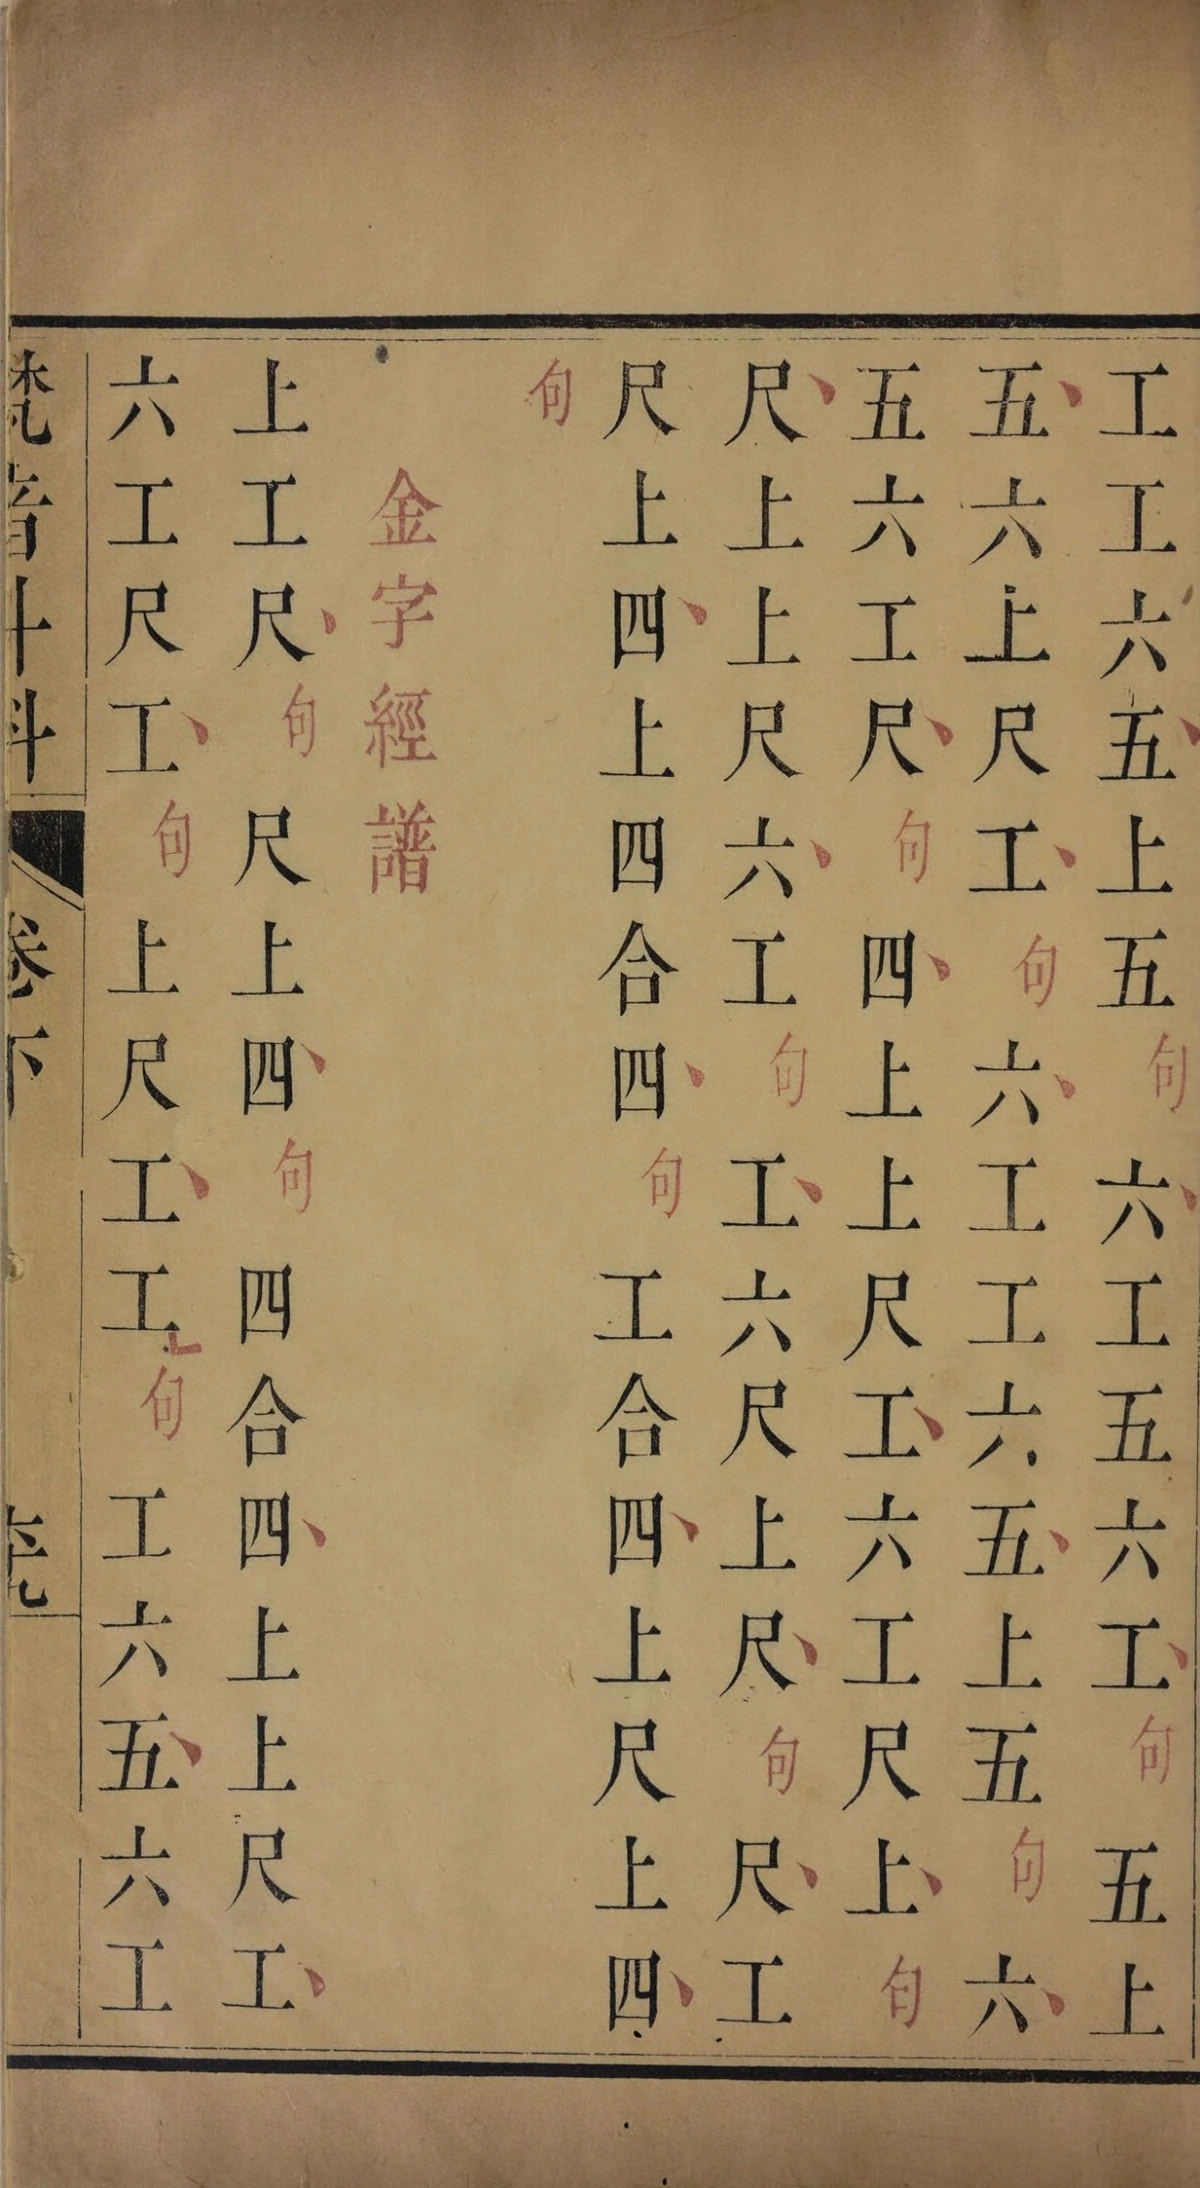 工工六五上五句六工五六工句五上
五六上尺工句六工工六五上五句六
五六工尺句四上上尺工六工尺上句
尺上上尺六工句工六尺上尺句尺工
尺上四上四合四句工合四上尺上四
句
金字經譜
上工尺句尺上四句四合四上上尺工
六工尺工句上尺工工句工六五六工
梵音斗科 卷下